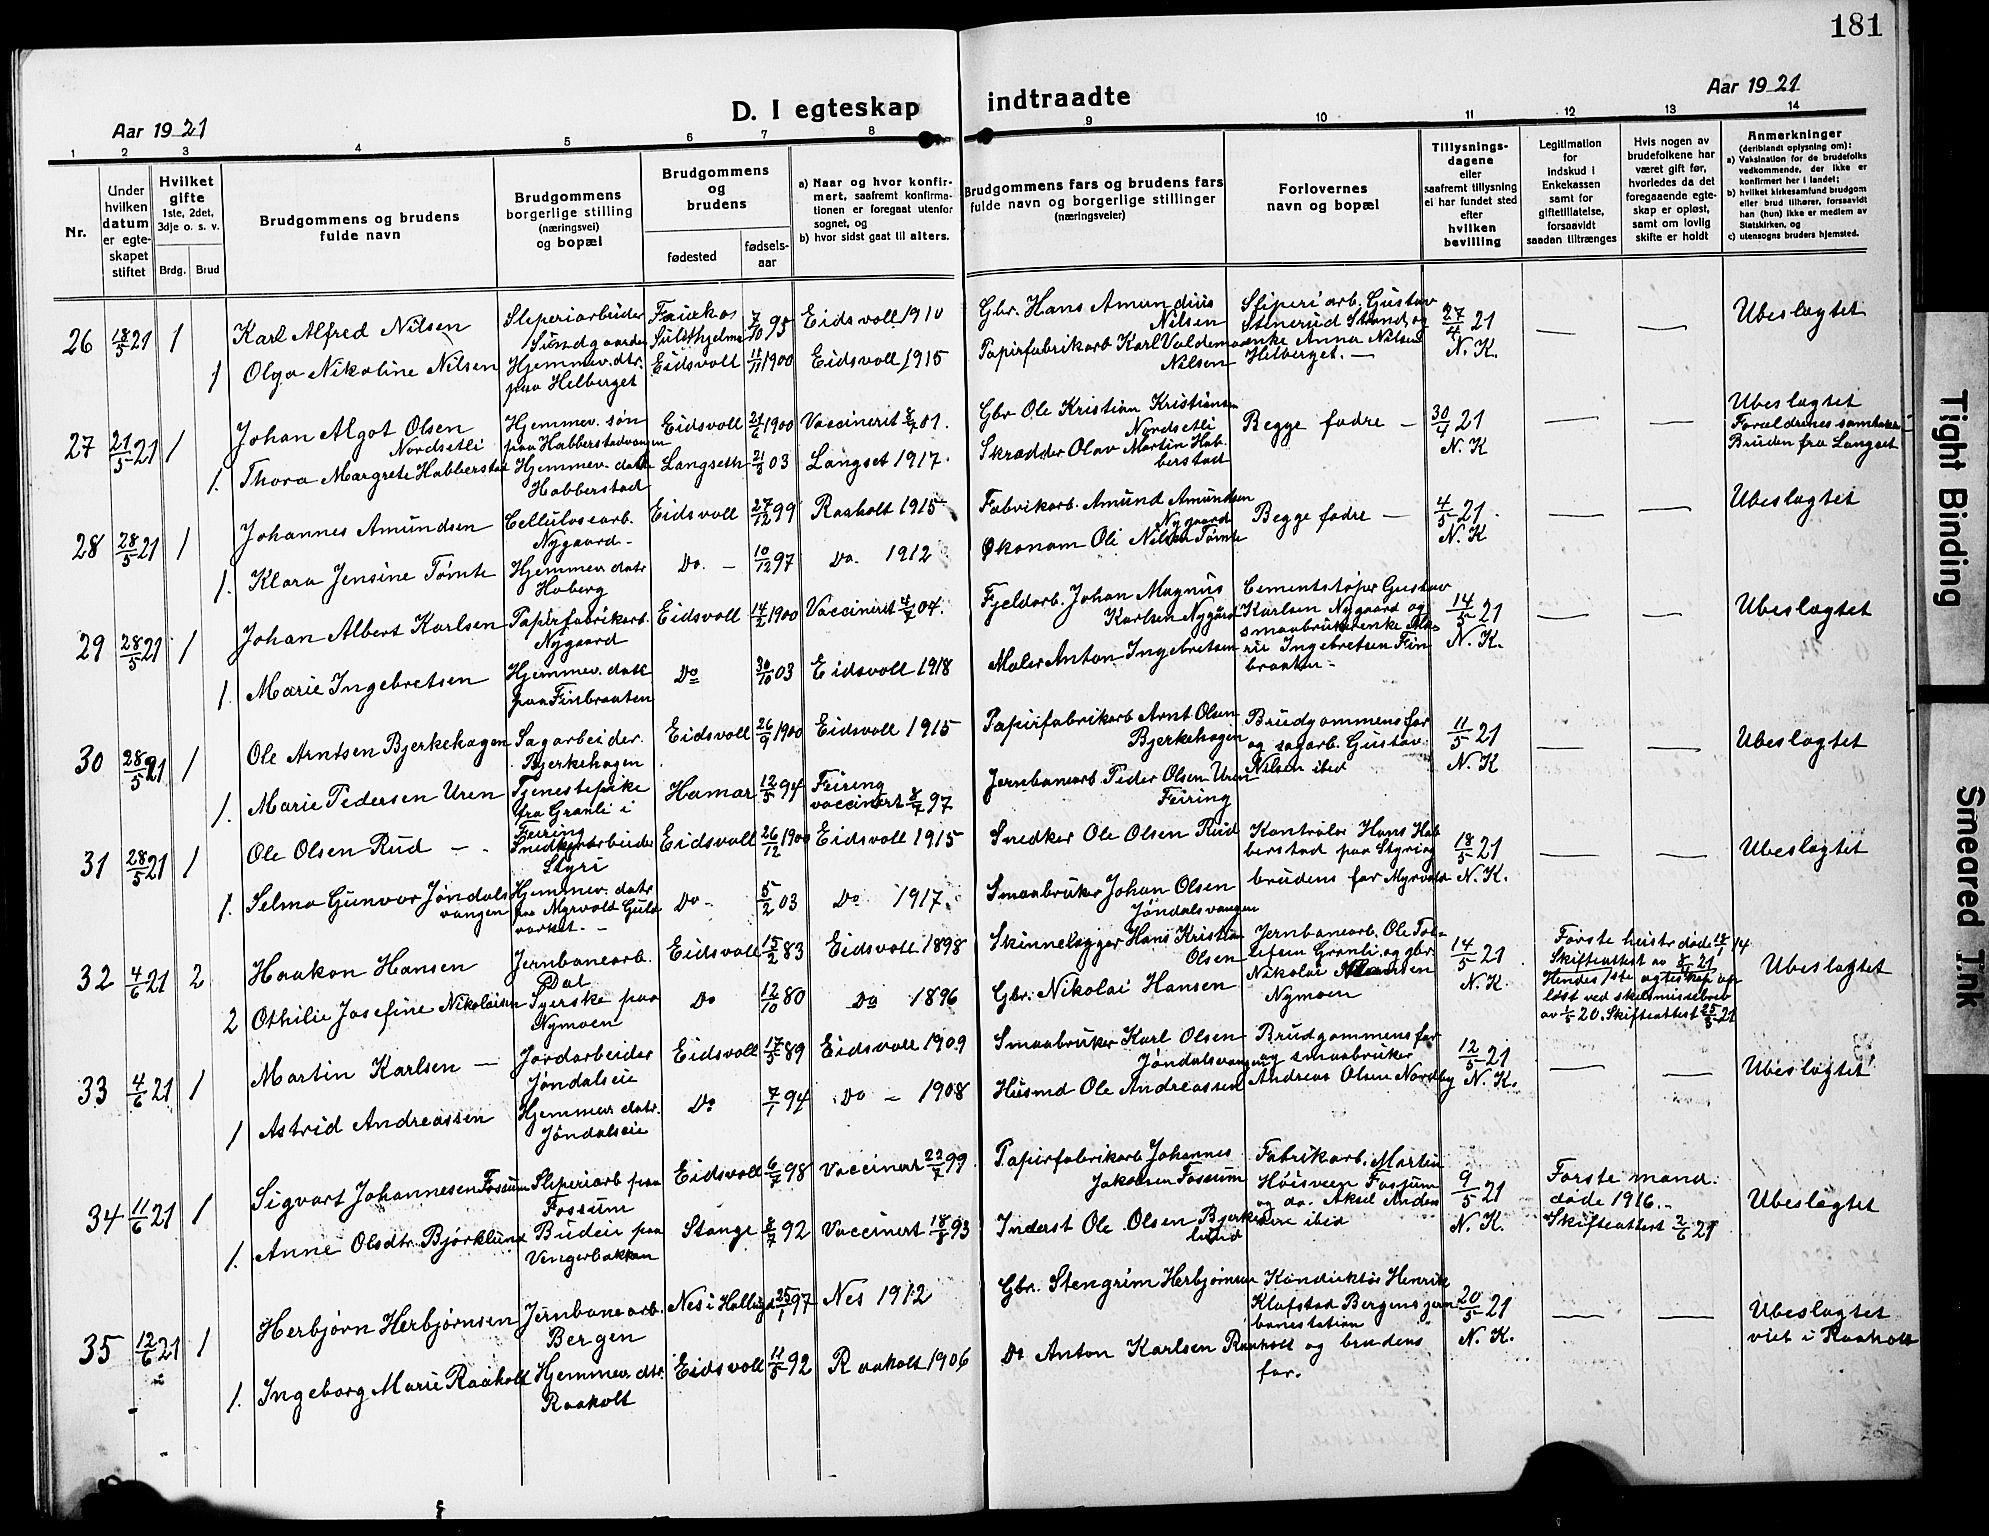 181
D. I egteskap indtraadte
Aar 1921
Aar 1921
1 2 3 4 5 6 7 8 9 10 11 12 13 14
Nr.
Under hvilken datum er egteskapet stiftet
Hvilket gifte 1ste, 2det, 3dje o. s. v.
Brdg. Brud
Brudgommens og brudens fulde navn
Brudgommens borgerlige stilling (næringsvei) og bopæl
Brudgommens og brudens
fødested
fødselsaar
a) Naar og hvor konfirmert, saafremt konfirmationen er foregaat utenfor sognet, og
b) hvor sidst gaat til alters.
Brudgommens fars og brudens fars fulde navn og borgerlige stillinger (næringsveier)
Forlovernes navn og bopæl
Tillysningsdagene eller saafremt tillysning ei har fundet sted efter hvilken bevilling
Legitimation for indskud i Enkekassen samt for giftetillatelse, forsaavidt saadan tiltrænges
Hvis nogen av brudefolkene har været gift før, hvorledes da det foregaaende egteskap er opløst, samt om lovlig skifte er holdt
Anmerkninger (deriblandt oplysning om):
a) Vaksination for de brudefolks vedkommende, der ikke er konfirmert her i landet;
b) hvilket kirkesamfund brudgom eller brud tilhører, forsaavidt han (hun) ikke er medlem av Statskirken, og
c) utensogns bruders hjemsted.
26 18/5 21 1 Karl Alfred Nilsen Sliperiarbeider Sundgaarden Fauskos Sulithjelma 7/10 95 Eidsvoll 1910 Gbr. Hans Amundius Nilsen Sliperiarb. Gustav Stenerud Strand, og enke Anna Nilsen Helberget. — 27/4 21 N. K. — — Ubeslægtet
1 Olga Nikoline Nilsen Hjemmev. dtr. paa Helberget Eidsvoll 11/11 1900 Eidsvoll 1915 Papirfabrikarb Karl Valdemar Nilsen
27 21/5 21 1 Johan Algot Olsen Nordsetli Hjemmev. søn paa Habberstadvangen Eidsvoll 21/6 1900 Vaccinerit 8/7 01. Gbr Ole Kristian Kristiansen Nordsetli Begge fædre — 30/4 21 N. K — — Ubeslægtet Forældrenes samtykke Bruden fra Langset
1. Thora Margrete Habberstad Hjemmev. datt Habberstad Langseth 21/3 03 Langset 1917. Skrædder Olav Martin Habberstad
28 28/5 21 1 Johannes Amundsen Cellulosearb. Nygaard — Eidsvoll 27/12 99 Raaholt 1915 Fabrikarb. Amund Amundsen Nygaard Begge fædre — 4/5 21. N. K — — Ubeslægtet
1. Klara Jensine Tømte Hjemmev datr Hoberg Do. — 10/12 97 Do. 1912 Økonom Ole Nilsen Tømte
29 28/5 21 1 Johan Albert Karlsen Papirfabrikarb. Nygaard Eidsvoll 14/2 1900 Vaccinerit 4/7 04. Fjeldarb. Johan Magnus Karlsen Nygård Cementstøper Gustav Karlsen Nygaard og smaabrukerenke Marie Ingebretsen Finbraaten — 14/5 21 N. K. — — Ubeslægtet
1. Marie Ingebretsen Hjemmev. datt paa Finbraaten Do 30/10 03 Eidsvoll 1918 Maler Anton Ingebretsen
30 28/5 21 1 Ole Arntsen Bjerkehagen Sagarbeider. Bjerkehagen Eidsvoll 26/9 1900 Eidsvoll 1915 Papirfabrikarb Arnt Olsen Bjerkehagen Brudgommens far og sagarb. Gustav Nilsen ibid 11/5 21 N. K — — Ubeslægtet
1. Marie Pedersen Uren Tjenestepike fra Granli i Feiring Hamar 12/5 94 Feiring vaccinert 8/7 97 Jernbanearb Peder Olsen Uren Feiring
31 28/5 21 1 Ole Olsen Rud — Snedkerarbeider Styri Eidsvoll 26/12 1900 Eidsvoll 1915 Snedker Ole Olsen Rud Kontrolør Hans Habberstad paa Styri og brudens far Myrvold 18/5 21 N. K. — — Ubeslægtet
1. Selma Gunvor Jøndalsvangen Hjemmev. datr. fra Myrvold Guldverket. — Do — 5/2 03 Do 1917. Smaabruker Johan Olsen Jøndalsvangen
32 4/6 21 2 Haakon Hansen Jernbanearb. Dal Eidsvoll 15/2 83 Eidsvoll 1898 Skinnelægger Hans Kristian Olsen Jernbanearb. Ole Tollefsen Granli, og gbr. Nikolai Hansen Nymoen 14/5 21. N. K. Første hustr døde Skifteattest av Hendes 1ste egteskap opløst ved skilsmissebrev av 1/5 20. Skifteattest 25/5 21 Ubeslægtet
2 Othilie Josefine Nikolaisen Syerske paa Nymoen Do 12/10 80 Do 1896 Gbr. Nikolai Hansen
33 4/6 21 1 Martin Karlsen — Jordarbeider Jøndalseie Eidsvoll 17/5 89 Eidsvoll 1909 Smaabruker Karl Olsen Jøndalsvangen Brudgommens far og smaabruker Andreas Olsen Nordby 12/5 21 N. K. — — Ubeslægtet
1 Astrid Andreassen Hjemmev datr. Jøndalseie Do 7/1 94 Do — 1908 Husmd Ole Andreassen
34 11/6 21 1 Sigvart Johannesen Fossum Sliperiarb paa Fossum Eidsvoll 6/7 98 Vaccinert 22/7 99 Papirfabrikarb Johannes Jakobsen Fossum Fabrikarb. Martin Høisveen Fossum og do. Aksel Andersen ibid 9/5 21 N. K. Første mand. døde 1916. — Skifteattest 2/6 21 Ubeslægtet
1. Anne Olsdtr. Bjørklund Budeie paa Vengerbakken Stange 8/7 92 Vaccinert 18/8 93 Inderst Ole Olsen Bjerkelund
35 12/6 21 1 Herbjørn Herbjørnsen Jernbanearb. Bergen Nes i Hallingd 25/1 97 Nes 1912 Gbr. Stengrim Herbjørnsen Konduktør Henrik Klafstad Bergens jernbanestation og brudens far. 20/5 21 N. K. — — Ubeslægtet viet i Raaholt
1. Ingeborg Marie Raaholt Hjemmev dtr. Raaholt Eidsvoll 11/5 92 Raaholt 1906 Do Anton Karlsen Raaholt
Tight Binding
Smeared Ink